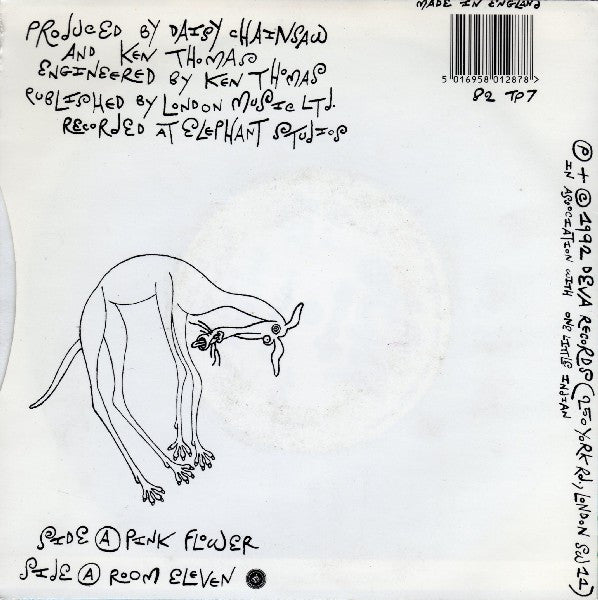 MADE IN ENGLAND
PRODUCED BY DAISY CHAINSAW
AND KEN THOMAS
ENGINEERED BY KEN THOMAS
PUBLISHED BY LONDON MUSIC LTD.
RECORDED AT ELEPHANT STUDIOS
5 016958 012878 >
82 TP7
Ⓟ + © 1992 DEVA RECORDS (250 YORK RD, LONDON SW11)
IN ASSOCIATION WITH ONE LITTLE INDIAN
SIDE Ⓐ PINK FLOWER
SIDE Ⓐ ROOM ELEVEN